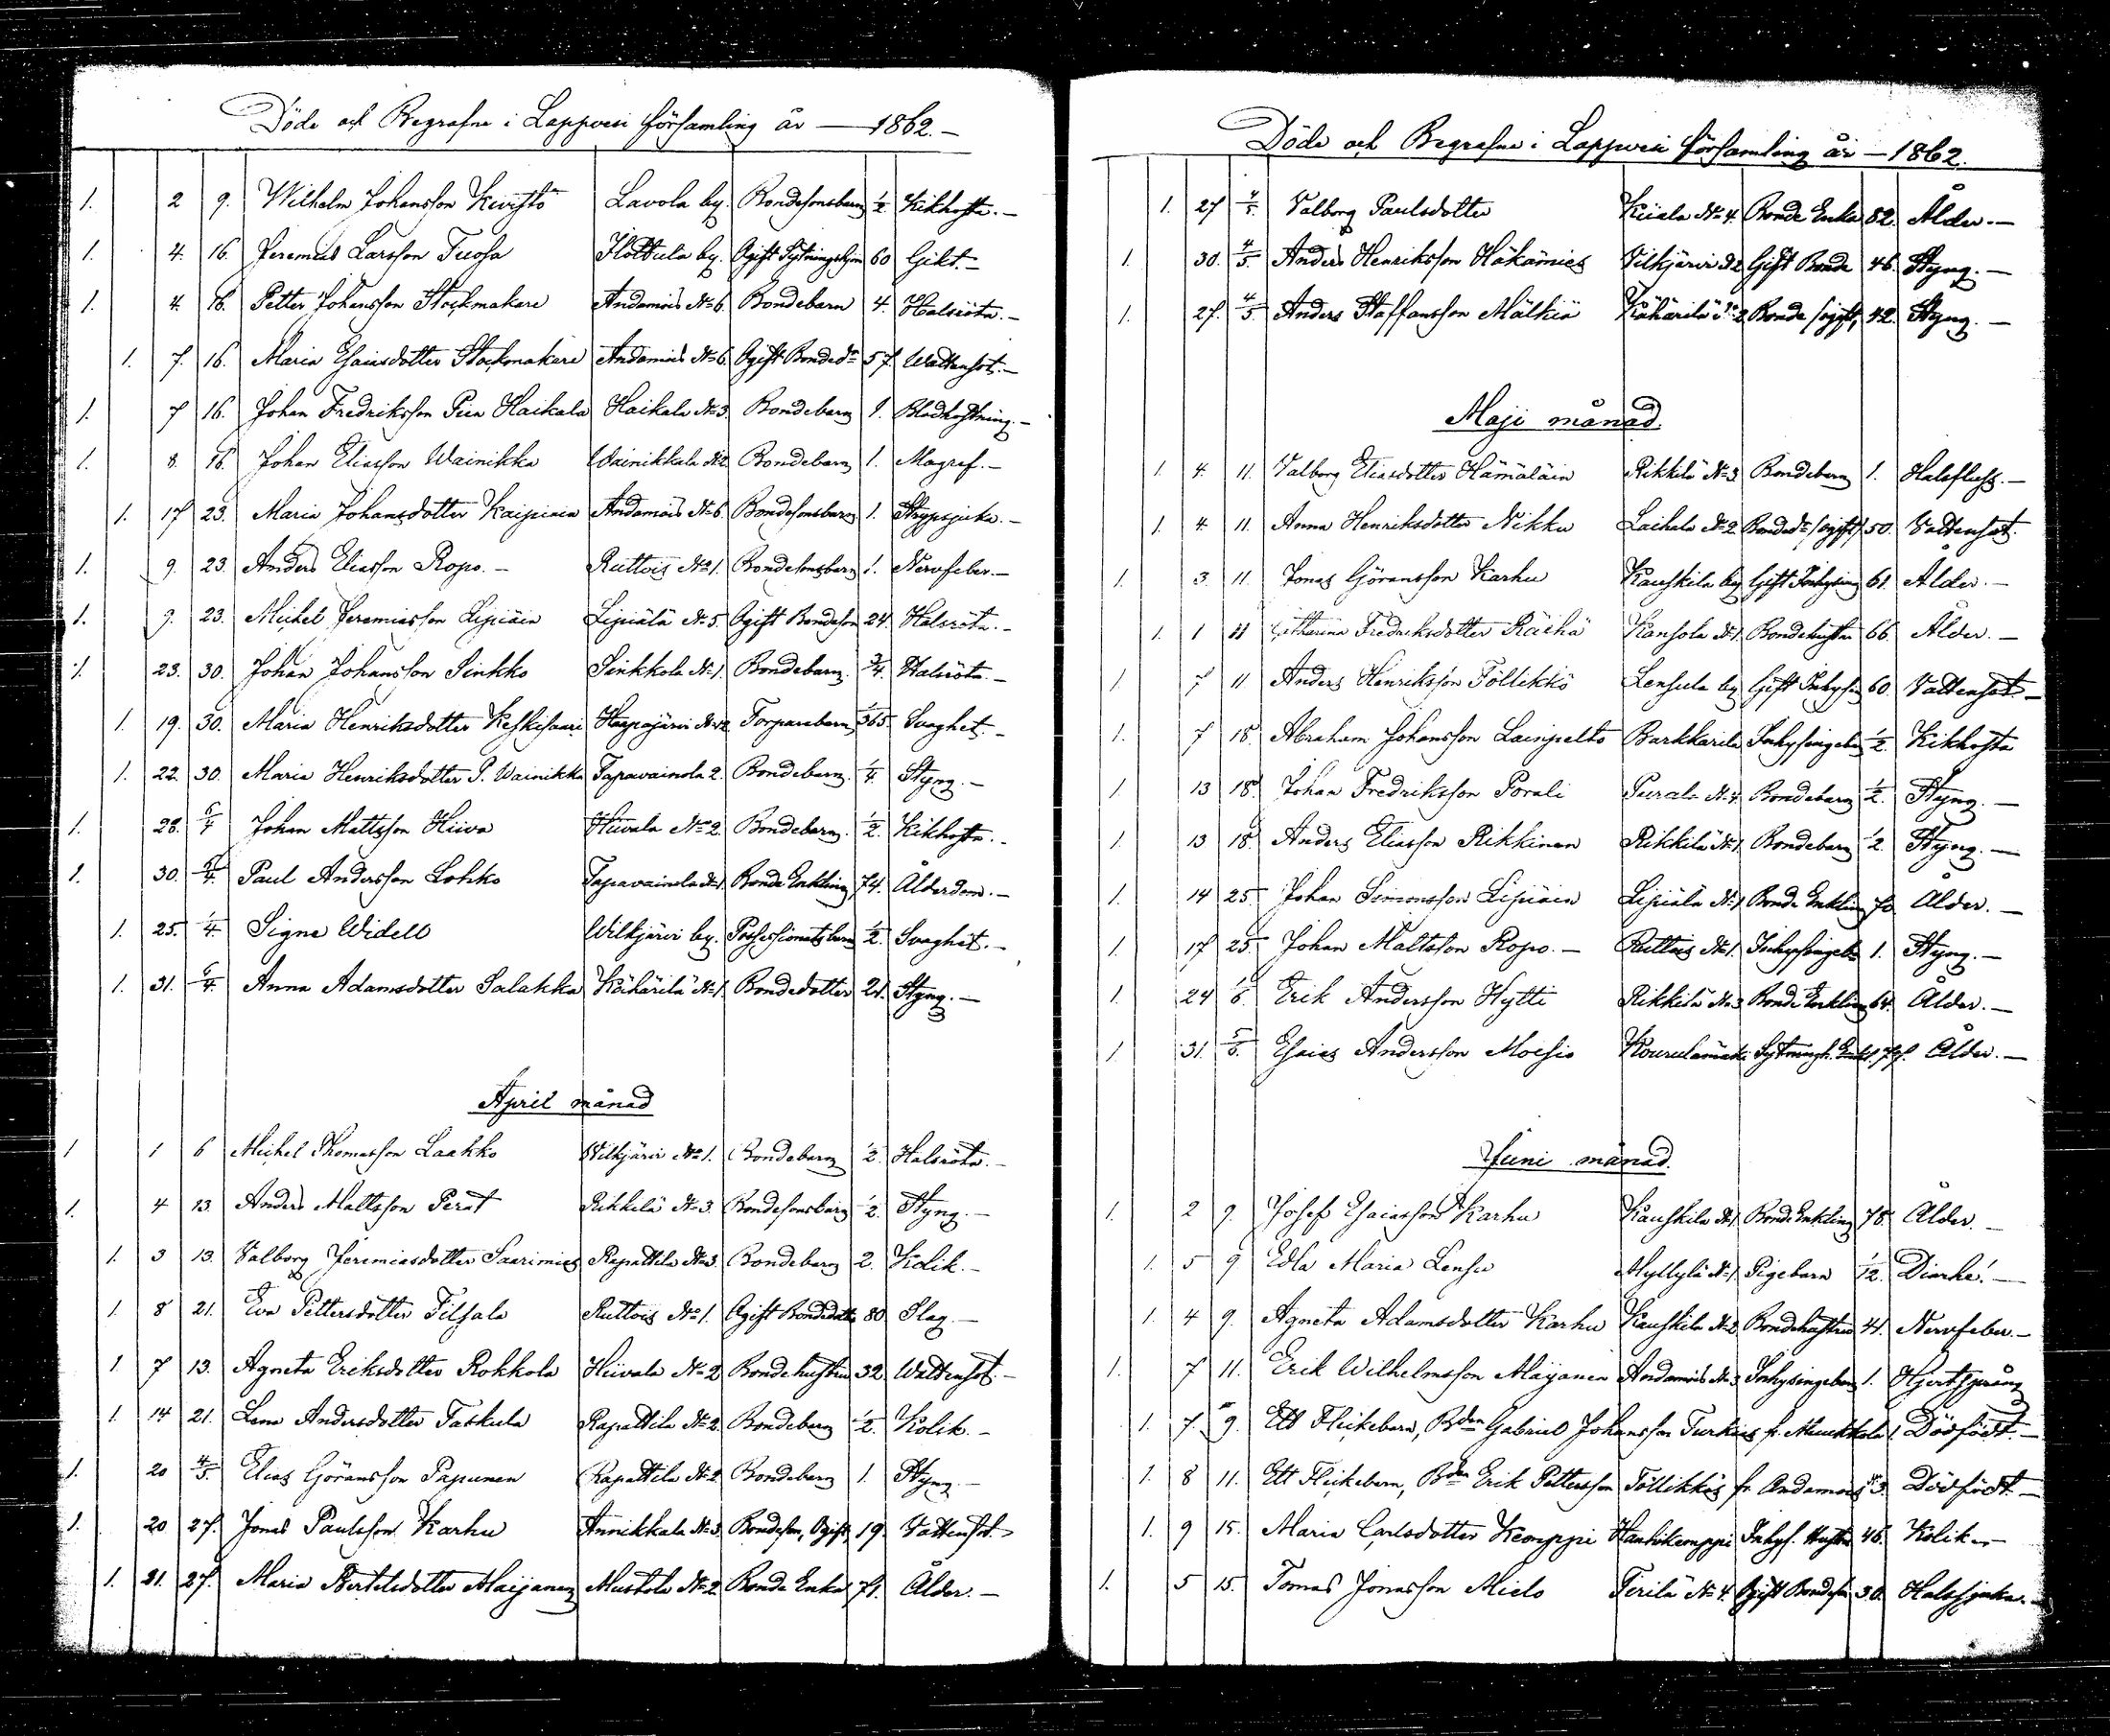 Döde och Begrafne i Lappvesi församling år — 1862. —
1. 2 9. Wilhelm Johansson Kivistö Lavola by. Bondesonsbarn 1/2 Kikhosta. —
1. 4. 16. Jeremias Larsson Tuosa Hottula by. Ogift Sytningshjon 60 Gikt. —
1. 4. 16. Petter Johansson Stockmakare Andamois No 6. Bondebarn 4. Halsröta. —
1. 7. 16. Maria Esaiasdotter Stockmakare Andamois No 6. Ogift Bondedr 57. Wattensot. —
1. 7 16. Johan Fredriksson Pien Haikala Haikala No 3. Bondebarn 1. Blodhostning. —
1. 8. 16. Johan Eliasson Wainikka Wainikkala No 2. Bondebarn 1. Magref. —
1. 17 23. Maria Johansdotter Kaipiain Andamois No 6. Bondesonsbarn 1. Strypsjuka. —
1. 9. 23. Anders Eliasson Ropo. — Ruttois No 1. Bondesonsbarn 1. Nervfeber. —
1. 9. 23. Michel Jeremiasson Lipiäin Lipiälä No 5. Ogift Bondeson 24. Halsröta. —
1. 23. 30. Johan Johansson Sinkko Sinkkola No 1. Bondebarn. 3/4. Halsröta. —
1. 19. 30. Maria Henriksdotter Keskisaari Haapajärvi No 2. Torparebarn 1/365. Svaghet. —
1. 22. 30. Maria Henriksdotter P. Wainikka Tapavainola 2. Bondebarn. 1/4. Styng. —
1. 28. 6/4 Johan Mattsson Hiiva Hiivala No 2. Bondebarn. 1/2. Kikhosta. —
1. 30. 6/4. Paul Andersson Lohko Tapavainola No 1. Bonde Enkling 74. Ålderdom. —
1. 25. 1/4. Signe Widell Wilkjärvi by. Possessionatsbarn 1/2. Svaghet. —
1. 31. 6/4. Anna Adamsdotter Salakka Kähärilä No 1. Bondedotter 21. Styng. —
April månad
1 1 6 Michel Thomasson Laahko Vilkjärvi No 1. Bondebarn 1/2. Halsröta. —
1. 4 13. Anders Mattsson Perät Rikkilä No 3. Bondesonsbarn 1/2. Styng. —
1. 3 13. Valborg Jeremiasdotter Saarimies Rapattila No 3. Bondebarn 2. Kolik. —
1. 8 21. Eva Pettersdotter Tilsala Ruttois No 1. Ogift Bondedotter 80 Slag. —
1 7 13. Agneta Eriksdotter Rokkola Hiivala No 2 Bondehustru 32 Wattensot. —
1. 14 21. Lena Andersdotter Taskula Rapattila No 2. Bondebarn 1/2. Kolik. —
1. 20 4/5. Elias Göransson Papunen Rapattila No 2. Bondebarn 1. Styng —
1. 20 27. Jonas Paulsson Karhu Annikkala No 3. Bondeson, Ogift, 19. Vattensot. —
1. 21. 27. Maria Bertilsdotter Maijanen Mustola No 2. Bonde Enka 71. Ålder. —
Döde och Begrafne i Lappvesi församling år — 1862.
1. 27 4/5. Valborg Paulsdotter Kiiala No 4. Bonde Enka 82. Ålder. —
1. 30. 4/5. Anders Henriksson Häkämies Vilkjärvi 2 Gift Bonde 46. Styng. —
1. 27. 4/5. Anders Staffansson Mälkiä Kähärilä No 2 Bonde (ogift) 42. Styng. —
Maji månad.
1. 4. 11. Valborg Eliasdotter Hämäläin Rikkilä No 3 Bondebarn 1. Halsfluss. —
1. 4 11. Anna Henriksdotter Nikku Laihala No 2 Bondedr (ogift) 50. Vattensot.
1. 3. 11. Jonas Göransson Karhu Kauskila by Gift Inhysing 61. Ålder. —
1. 1 11 Catharina Fredriksdotter Räihä Kansola No 1 Bondehustru 66. Ålder. —
1. 7 11 Anders Henriksson Töllikkö Lensula by Gift Inhysing 60. Vattensot. —
1. 7 18. Abraham Johansson Lainpelto Barkkarila Inhysingebn 1/2. Kikhosta
1. 13 18. Johan Fredriksson Porali Purala No 4. Bondebarn 1/2. Styng. —
1. 13 18. Anders Eliasson Rikkinen Rikkilä No 1. Bondebarn 1/2. Styng. —
1. 14 25. Johan Simonsson Lipiäin Lipiälä No 1 Bonde Enkling 70 Ålder. —
1. 17 25. Johan Mattsson Ropo. — Ruttois No 1. Inhysingebn 1. Styng. —
1. 24 1/6. Erik Andersson Hytti Rikkilä No 3 Bonde Enkling 64. Ålder. —
1. 31. 5/6. Esaias Andersson Moisio Kourulamäki Sytningh. Enkl. Ålder. —
Juni månad.
1. 2 9. Josef Esaiasson Karhu Kauskila No 1. Bonde Enkling 78. Ålder. —
1. 5 9 Edla Maria Lensu Myllylä No 1 Pigebarn 1/12. Diarhé. —
1. 4 9. Agneta Adamsdotter Karhu Kauskila No 2 Bondehustru 41. Nervfeber. —
1. 7 11. Erik Wilhelmsson Maijanen Andamois No 3 Inhysingebarn 1. Hjertsprång
1. 7. 9. Ett Flickebarn, Bden Gabriel Johansson Turkias fr. Muukkola 1. Dödfödt. —
1. 8 11. Ett Flickebarn, Bden Erik Pettersson Töllikkös fr Andamois No 3. Dödfödt. —
1. 9 15. Maria Carlsdotter Kemppi Hanhikemppi Inhys. Hustru 46. Kolik. —
1. 5 15. Tomas Jonasson Mielo Terilä No 4. Ogift Bondeson 30. Halssjuka. —